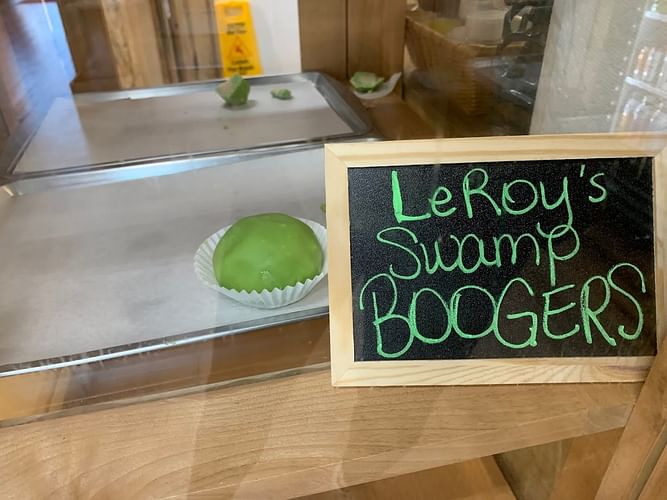 LeRoy's
Swamp
BOOGERS